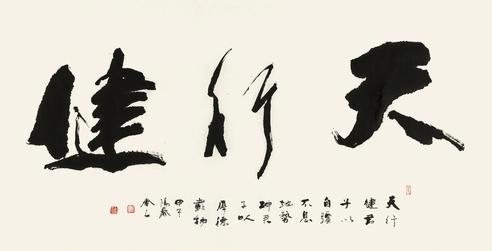 天行健
天行
健君
子以
自强
不息
地勢
坤君
子以
厚德
載物
甲午